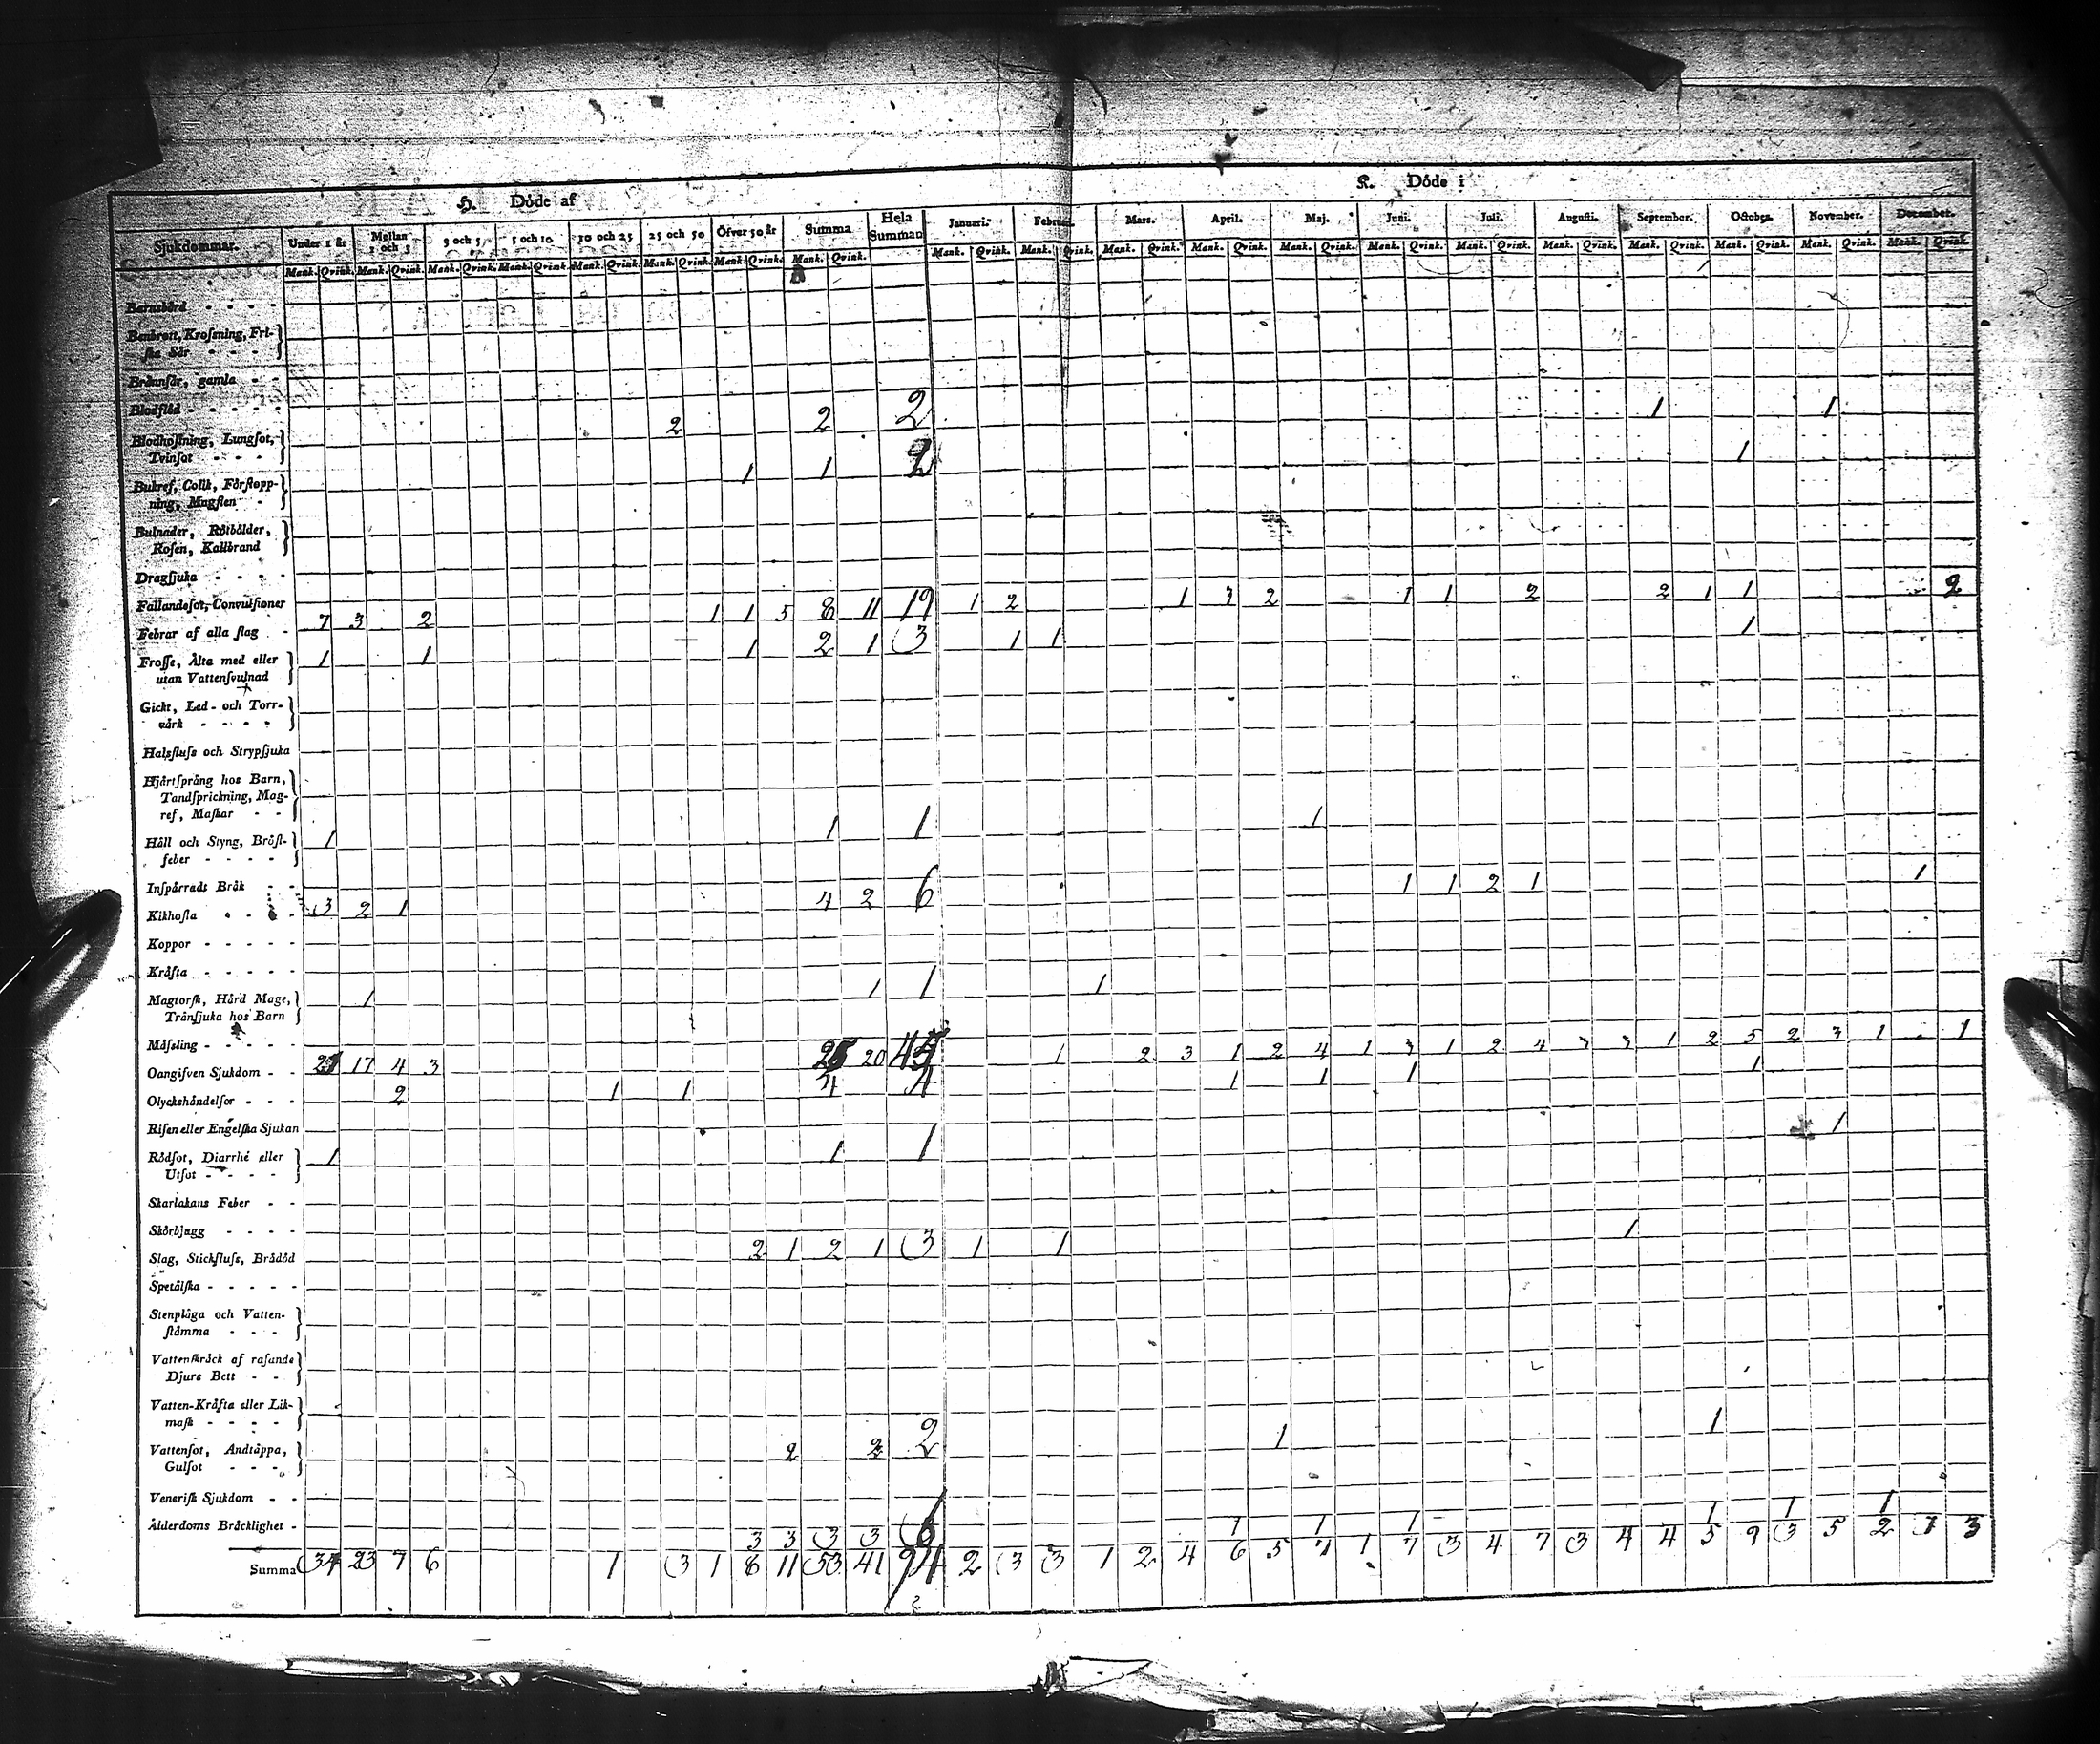 H. Döde af
K. Döde i
Sjukdommar. Under 1 år Mellan 1 och 3 3 och 5 5 och 10 10 och 25 25 och 50 Öfver 50 år Summa Hela Summan Januari. Februari. Mars. April. Maj. Juni. Juli. Augusti. September. October. November. December.
Mank. Qvink. Mank. Qvink. Mank. Qvink. Mank. Qvink. Mank. Qvink. Mank. Qvink. Mank. Qvink. Mank. Qvink. Mank. Qvink. Mank. Qvink. Mank. Qvink. Mank. Qvink. Mank. Qvink. Mank. Qvink. Mank. Qvink. Mank. Qvink. Mank. Qvink. Mank. Qvink. Mank. Qvink. Mank. Qvink.
Barnsbörd - - - -
Benbrott, Krosning, Fri-
ska Sår - - - -
Brännsår, gamla - -
Blodflöd - - - - -
2 2 2 1 1
Blodhostning, Lungsot,
Tvinsot - - - -
1 1 2 1
Bukref, Colik, Förstopp-
ning, Magsten -
Bulnader, Rötbölder,
Rosen, Kallbrand
Dragsjuka - - - -
Fallandesot, Convulsioner
7 3 2 1 1 5 8 11 19 1 2 1 3 2 1 1 2 2 1 1 2
Febrar af alla slag -
1 1 1 2 1 3 1 1 1
Frosse, Älta med eller
utan Vattensvulnad
Gickt, Led- och Torr-
värk - - - -
Halsfluss och Strypsjuka
Hjärtsprång hos Barn,
Tandsprickning, Mag-
ref, Maskar - -
1 1 1 1
Håll och Styng, Bröst-
feber - - - -
Inspärradt Bråk - -
3 2 1 4 2 6 1 1 2 1 1
Kikhosta - - -
Koppor - - - - -
Kräfta - - - - -
1 1 1 1
Magtorsk, Hård Mage,
Trånsjuka hos Barn
Måsling - - - - -
17 4 3 20 45 1 2 3 1 2 4 1 3 1 2 4 3 3 1 2 5 2 3 1 1
Oangifven Sjukdom - -
2 1 1 4 4 1 1 1 1
Olyckshändelsor - - -
Risen eller Engelska Sjukan
1 1 1 1
Rödsot, Diarrhé eller
Utsot - - - -
Skarlakans Feber - -
Skörbjugg - - - -
2 1 2 1 3 1 1 1
Slag, Stickfluss, Brådöd
Spetälska - - - - -
Stenplåga och Vatten-
stämma - - -
Vattenskräck af rasande
Djurs Bett - -
Vatten-Kräfta eller Lik-
mask - - - -
2 2 2 1 1
Vattensot, Andtäppa,
Gulsot - - -
Venerisk Sjukdom - -
Ålderdoms Bräcklighet -
3 3 3 3 6 1 1 1 1 1 1
Summa 34 23 7 6 1 3 1 8 11 53 41 94 2 3 3 1 2 4 6 5 7 1 7 3 4 7 3 4 4 5 9 3 5 2 1 3